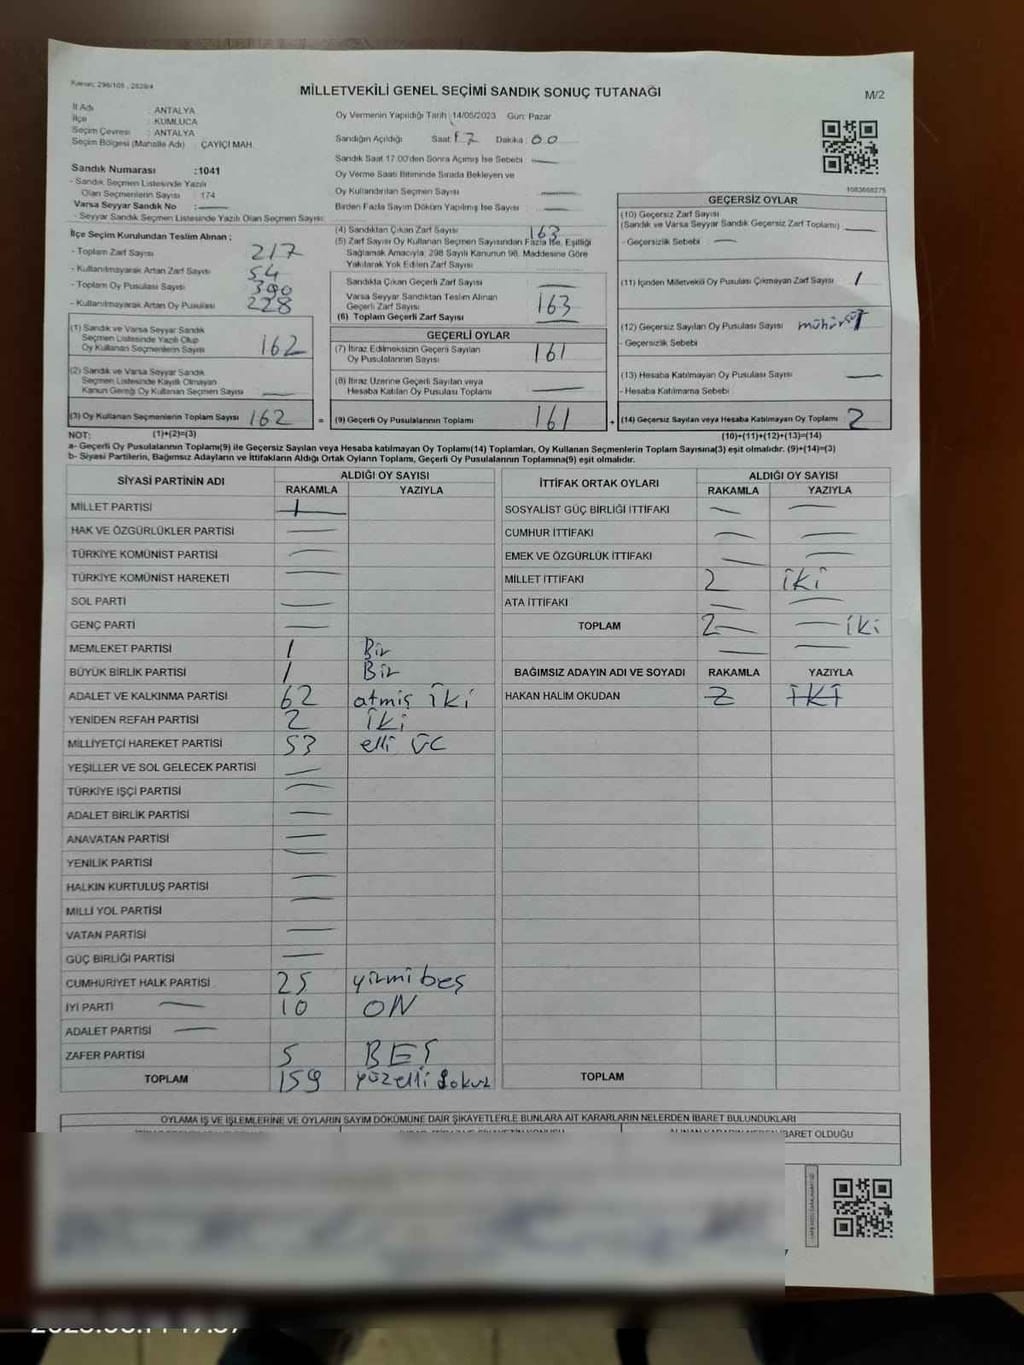 MİLLETVEKİLİ GENEL SEÇİMİ SANDIK SONUÇ TUTANAĞI
M/2
İl Adı : ANTALYA
İlçe : KUMLUCA
Seçim Çevresi : ANTALYA
Seçim Bölgesi (Mahalle Adı) ÇAYİÇİ MAH.
Oy Vermenin Yapıldığı Tarih : 14/05/2023 Gün: Pazar
Sandığın Açıldığı Saat: 17 Dakika: 00
Sandık Saat 17.00'den Sonra Açılmış İse Sebebi
Oy Verme Saati Bitiminde Sırada Bekleyen ve
Oy Kullandırılan Seçmen Sayısı
Birden Fazla Sayım Döküm Yapılmış İse Sayısı
Sandık Numarası :1041
- Sandık Seçmen Listesinde Yazılı
Olan Seçmenlerin Sayısı : 174
Varsa Seyyar Sandık No :
- Seyyar Sandık Seçmen Listesinde Yazılı Olan Seçmen Sayısı:
İlçe Seçim Kurulundan Teslim Alınan ;
- Toplam Zarf Sayısı 217
- Kullanılmayarak Artan Zarf Sayısı 54
- Toplam Oy Pusulası Sayısı 390
- Kullanılmayarak Artan Oy Pusulası 228
(1) Sandık ve Varsa Seyyar Sandık
Seçmen Listesinde Yazılı Olup
Oy Kullanan Seçmenlerin Sayısı 162
(2) Sandık ve Varsa Seyyar Sandık
Seçmen Listesinde Kayıtlı Olmayan
Kanun Gereği Oy Kullanan Seçmen Sayısı
(3) Oy Kullanan Seçmenlerin Toplam Sayısı 162 =
(4) Sandıktan Çıkan Zarf Sayısı 163
(5) Zarf Sayısı Oy Kullanan Seçmen Sayısından Fazla İse, Eşitliği
Sağlamak Amacıyla, 298 Sayılı Kanunun 98. Maddesine Göre
Yakılarak Yok Edilen Zarf Sayısı
Sandıkta Çıkan Geçerli Zarf Sayısı
Varsa Seyyar Sandıktan Teslim Alınan
Geçerli Zarf Sayısı
(6) Toplam Geçerli Zarf Sayısı 163
GEÇERLİ OYLAR
(7) İtiraz Edilmeksizin Geçerli Sayılan
Oy Pusulalarının Sayısı 161
(8) İtiraz Üzerine Geçerli Sayılan veya
Hesaba Katılan Oy Pusulalarının Toplamı
(9) Geçerli Oy Pusulalarının Toplamı 161 +
1083668275
GEÇERSİZ OYLAR
(10) Geçersiz Zarf Sayısı
(Sandık ve Varsa Seyyar Sandık Geçersiz Zarf Toplamı)
- Geçersizlik Sebebi
(11) İçinden Milletvekili Oy Pusulası Çıkmayan Zarf Sayısı 1
(12) Geçersiz Sayılan Oy Pusulası Sayısı
- Geçersizlik Sebebi
(13) Hesaba Katılmayan Oy Pusulası Sayısı
- Hesaba Katılmama Sebebi
(14) Geçersiz Sayılan veya Hesaba Katılmayan Oy Toplamı 2
NOT: (1)+(2)=(3)
(10)+(11)+(12)+(13)=(14)
a- Geçerli Oy Pusulalarının Toplamı(9) ile Geçersiz Sayılan veya Hesaba katılmayan Oy Toplamı(14) Toplamları, Oy Kullanan Seçmenlerin Toplam Sayısına(3) eşit olmalıdır. (9)+(14)=(3)
b- Siyasi Partilerin, Bağımsız Adayların ve İttifakların Aldığı Ortak Oyların Toplamı, Geçerli Oy Pusulalarının Toplamına(9) eşit olmalıdır.
SİYASİ PARTİNİN ADI
ALDIĞI OY SAYISI
RAKAMLA YAZIYLA
MİLLET PARTİSİ
HAK VE ÖZGÜRLÜKLER PARTİSİ
TÜRKİYE KOMÜNİST PARTİSİ
TÜRKİYE KOMÜNİST HAREKETİ
SOL PARTİ
GENÇ PARTİ
MEMLEKET PARTİSİ 1 Bir
BÜYÜK BİRLİK PARTİSİ 1 Bir
ADALET VE KALKINMA PARTİSİ 62 atmiş iki
YENİDEN REFAH PARTİSİ 2 iki
MİLLİYETÇİ HAREKET PARTİSİ 53 elli üc
YEŞİLLER VE SOL GELECEK PARTİSİ
TÜRKİYE İŞÇİ PARTİSİ
ADALET BİRLİK PARTİSİ
ANAVATAN PARTİSİ
YENİLİK PARTİSİ
HALKIN KURTULUŞ PARTİSİ
MİLLİ YOL PARTİSİ
VATAN PARTİSİ
GÜÇ BİRLİĞİ PARTİSİ
CUMHURİYET HALK PARTİSİ 25 yirmi beş
İYİ PARTİ 10 ON
ADALET PARTİSİ
ZAFER PARTİSİ 5 BEŞ
TOPLAM 159 yüzelli dokuz
İTTİFAK ORTAK OYLARI
ALDIĞI OY SAYISI
RAKAMLA YAZIYLA
SOSYALİST GÜÇ BİRLİĞİ İTTİFAKI
CUMHUR İTTİFAKI
EMEK VE ÖZGÜRLÜK İTTİFAKI
MİLLET İTTİFAKI 2 iki
ATA İTTİFAKI
TOPLAM 2 iki
BAĞIMSIZ ADAYIN ADI VE SOYADI RAKAMLA YAZIYLA
HAKAN HALİM OKUDAN 2 İKİ
TOPLAM
OYLAMA İŞ VE İŞLEMLERİNE VE OYLARIN SAYIM DÖKÜMÜNE DAİR ŞİKAYETLERLE BUNLARA AİT KARARLARIN NELERDEN İBARET BULUNDUKLARI
İBARET OLDUĞU